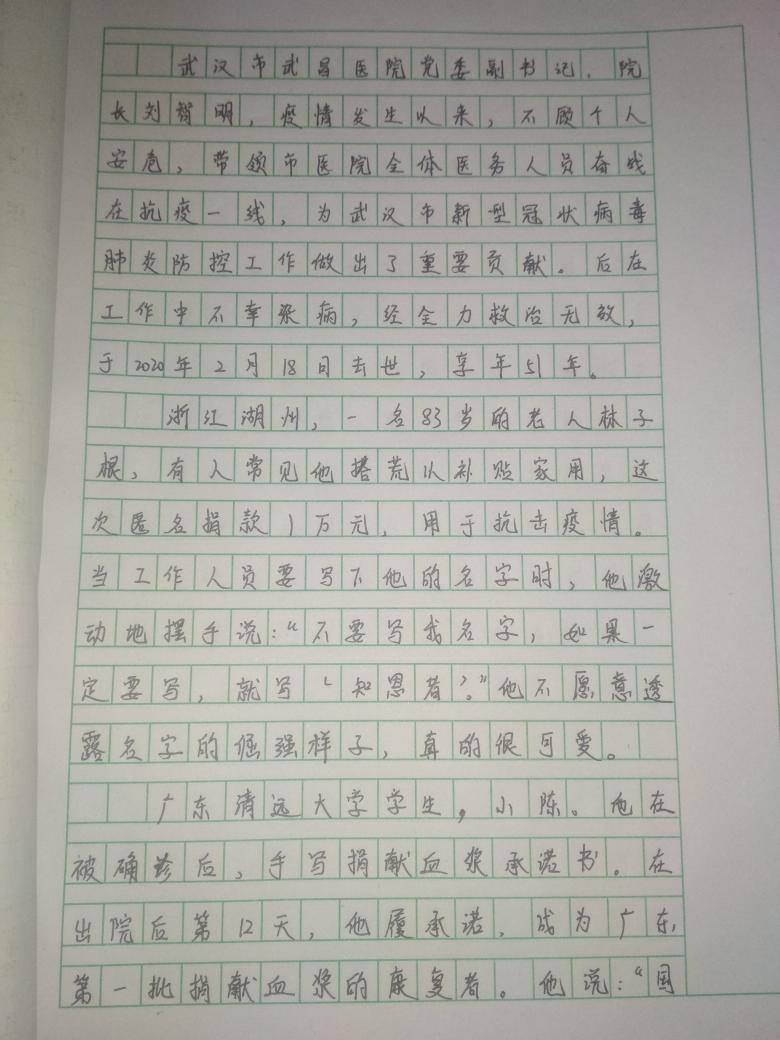 武汉市武昌医院党委副书记、院
长刘智明，疫情发生以来，不顾个人
安危，带领市医院全体医务人员奋战
在抗疫一线，为武汉市新型冠状病毒
肺炎防控工作做出了重要贡献。后在
工作中不幸染病，经全力救治无效，
于2020年2月18日去世，享年51年。
浙江湖州，一名83岁的老人林子
根，有人常见他搭荒以补贴家用，这
次匿名捐款1万元，用于抗击疫情。
当工作人员要写下他的名字时，他激
动地摆手说：“不要写我名字，如果一
定要写，就写‘知恩者’。”他不愿意透
露名字的倔强样子，真的很可爱。
广东清远大学学生，小陈。他在
被确诊后，手写捐献血浆承诺书。在
出院后第12天，他履承诺，成为广东，
第一批捐献血浆的康复者。他说：“国